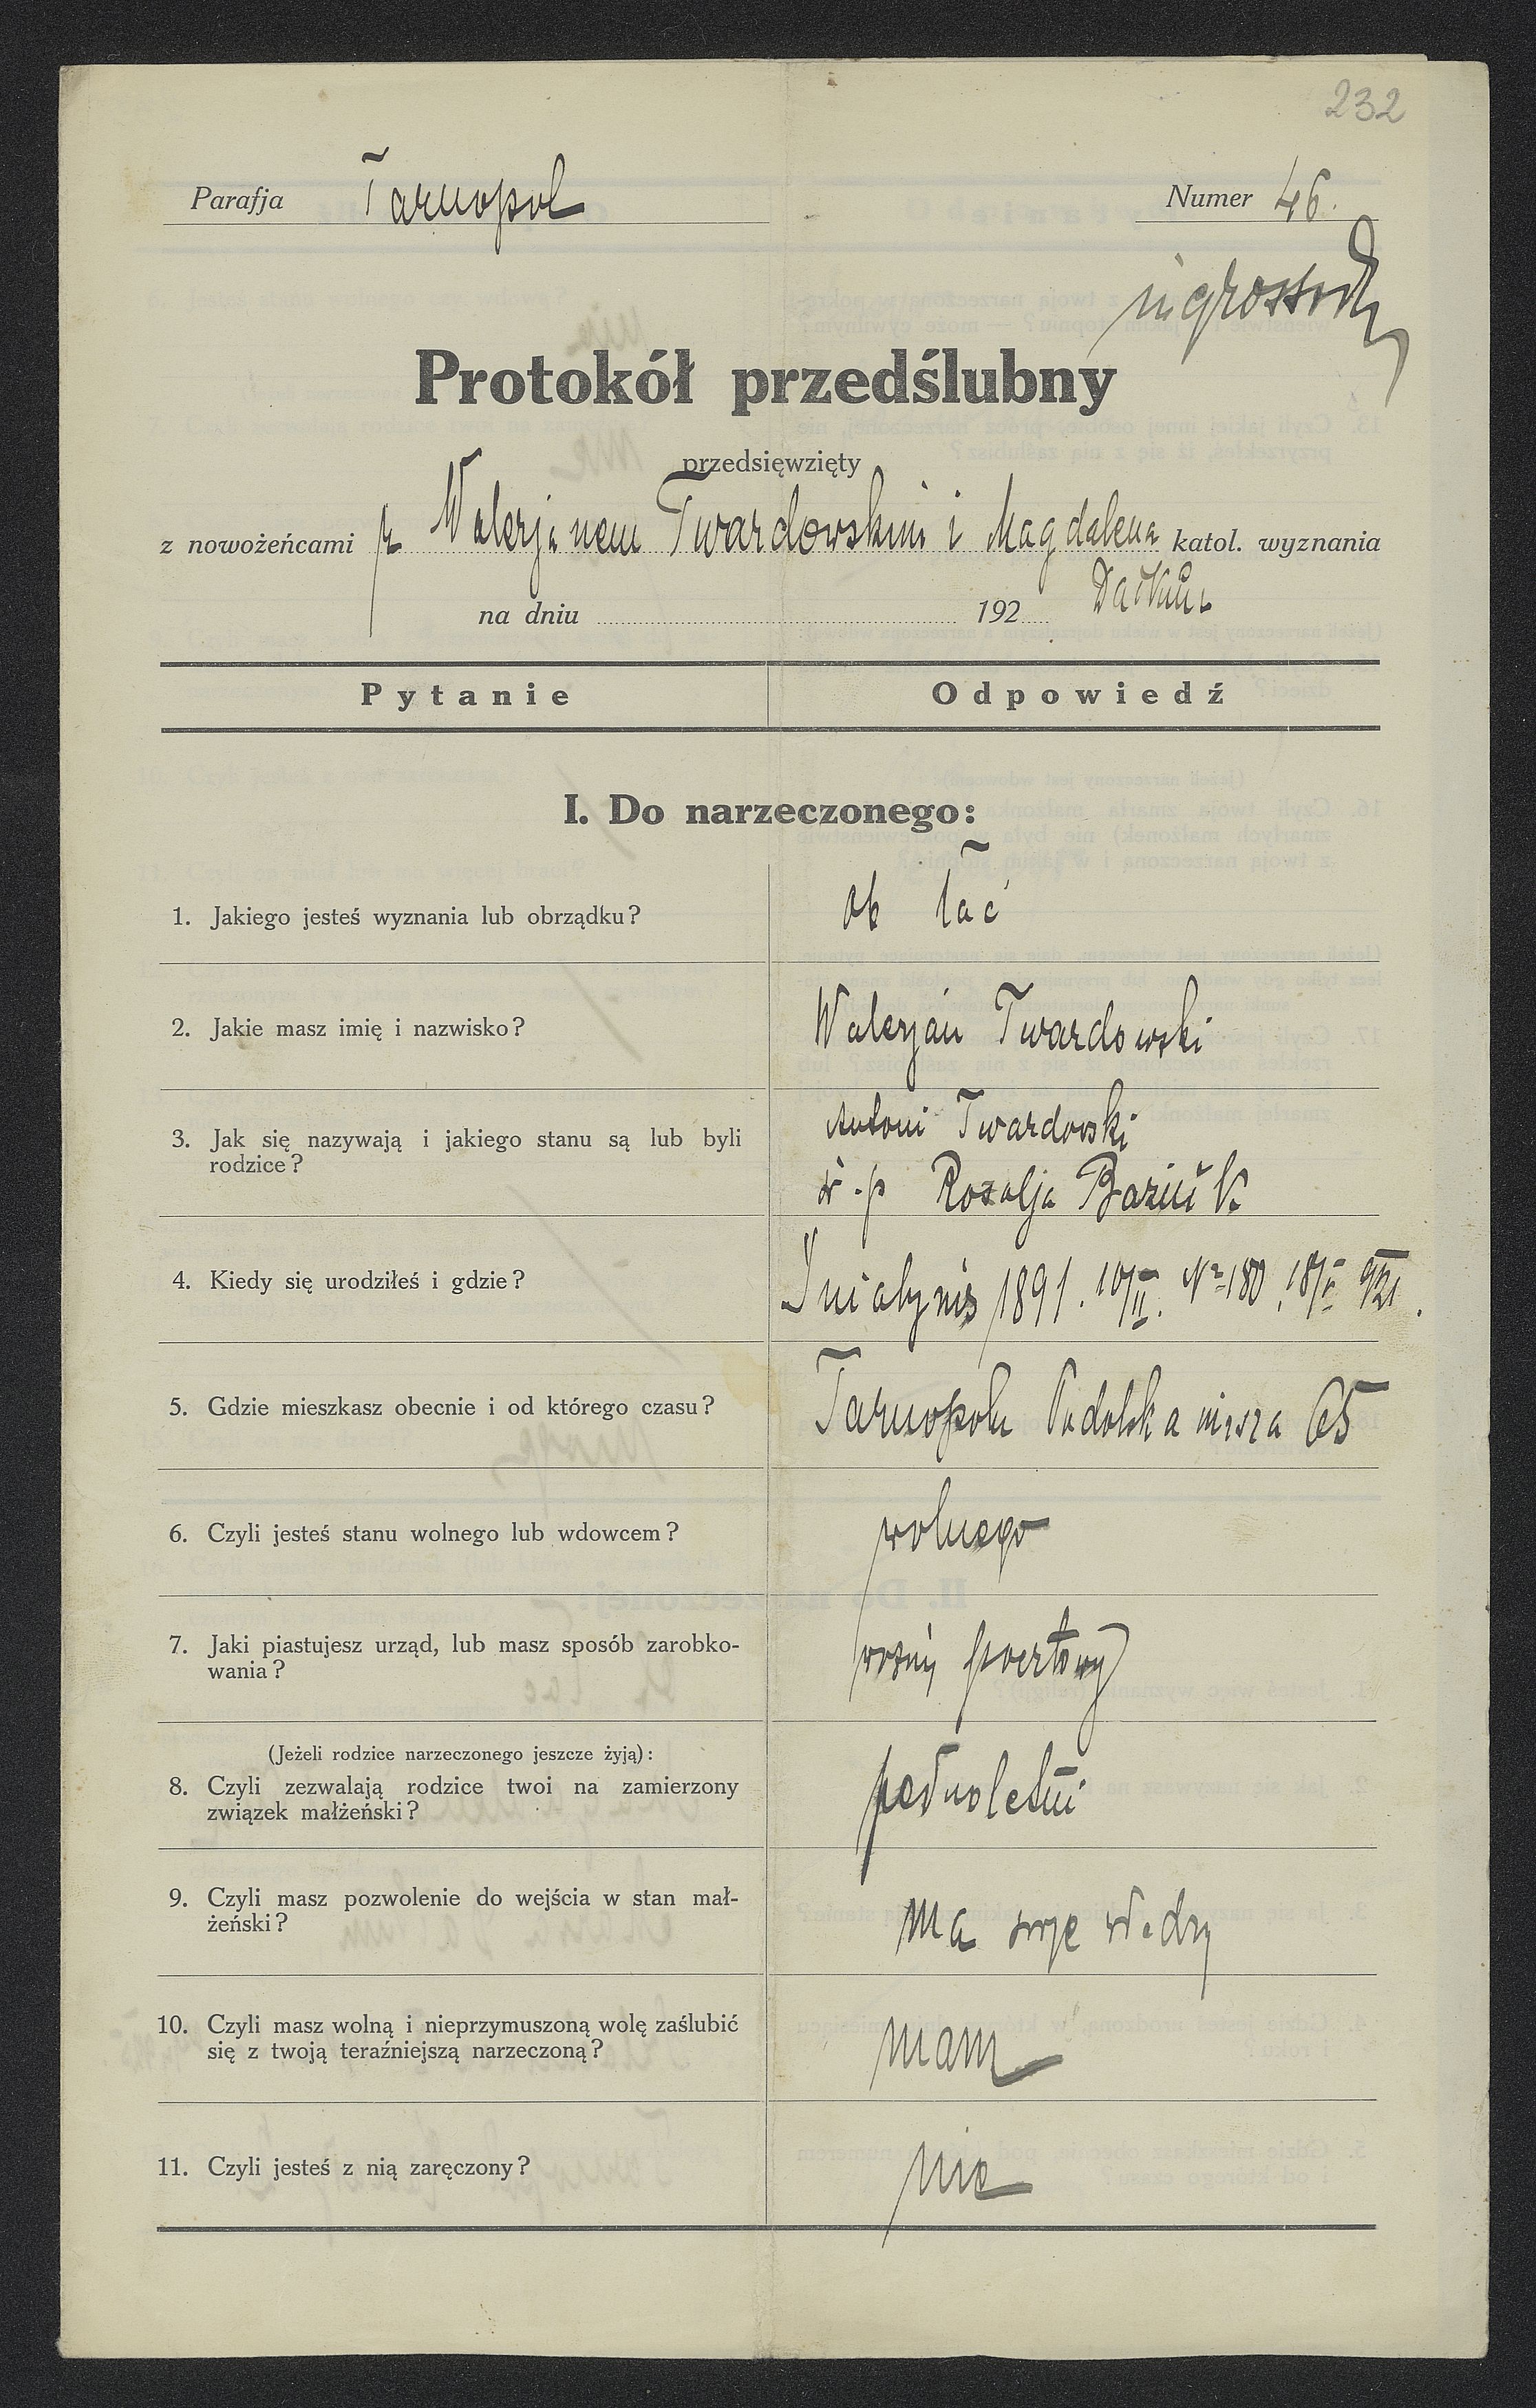 232
Parafja Tarnopol Numer 46.
Protokół przedślubny
przedsięwzięty
z nowożeńcami Walerjanem Twardowskim i Magdalena katol. wyznania
na dniu 192
Pytanie Odpowiedź
I. Do narzeczonego:
1. Jakiego jesteś wyznania lub obrządku? ob łać
2. Jakie masz imię i nazwisko? Walerjan Twardowski
Antoni Twardowski
3. Jak się nazywają i jakiego stanu są lub byli
rodzice?
ś. p Rozalja
4. Kiedy się urodziłeś i gdzie? 1891. 10/II. No 180
5. Gdzie mieszkasz obecnie i od którego czasu? Tarnopolu Podolska niższa 65
6. Czyli jesteś stanu wolnego lub wdowcem? wolnego
7. Jaki piastujesz urząd, lub masz sposób zarobko-
wania? woźny pocztowy
(Jeżeli rodzice narzeczonego jeszcze żyją):
8. Czyli zezwalają rodzice twoi na zamierzony
związek małżeński? pełnoletni
9. Czyli masz pozwolenie do wejścia w stan mał-
żeński? ma swej władzy
10. Czyli masz wolną i nieprzymuszoną wolę zaślubić
się z twoją teraźniejszą narzeczoną? mam
11. Czyli jesteś z nią zaręczony? nie